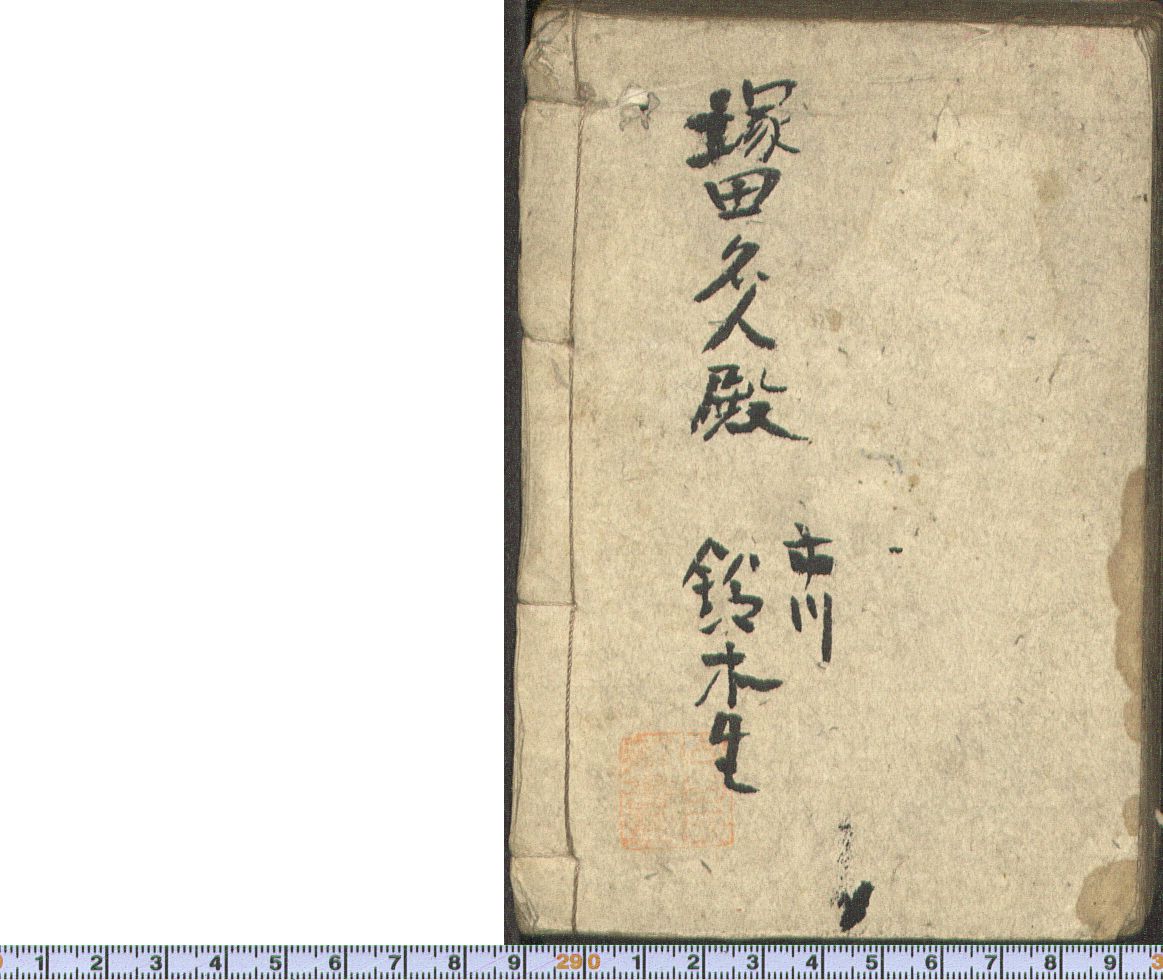 塚田名人殿
市川
鈴木生
1 2 3 4 5 6 7 8 9 29 0 1 2 3 4 5 6 7 8 9 3